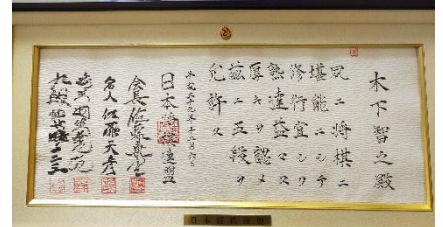 木下智之殿
夙ニ将棋ニ
堪能ニシテ
修行宜シク
熟達益々
厚キヲ認メ
茲ニ五段ヲ
允許ス
平成二十九年十二月六日
日本将棋連盟
会長佐藤康光
名人佐藤天彦
日本将棋連盟